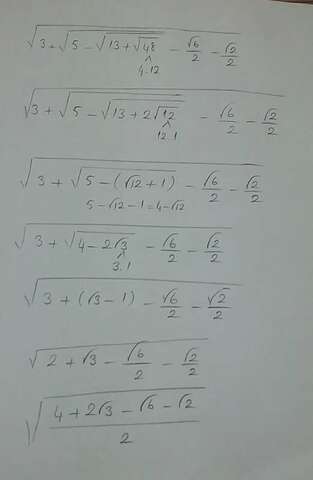 √(3 + √(5 − √(13 + √48)) − √6/2 − √2/2)
4.12
√(3 + √(5 − √(13 + 2√12)) − √6/2 − √2/2)
12.1
√(3 + √(5 − (√12 + 1)) − √6/2 − √2/2)
5 − √12 − 1 = 4 − √12
√(3 + √(4 − 2√3) − √6/2 − √2/2)
3.1
√(3 + (√3 − 1) − √6/2 − √2/2)
√(2 + √3 − √6/2 − √2/2)
√((4 + 2√3 − √6 − √2)/2)